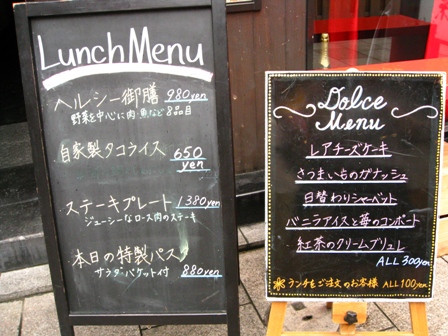 Lunch Menu
ヘルシー御膳 980yen
野菜を中心に肉・魚など8品目
自家製タコライス 650
yen
ステーキプレート 1380yen
ジューシーなロース肉のステーキ
本日の特製パスタ
サラダ・バケット付 880yen
Dolce
Menu
レアチーズケーキ
さつまいものガナッシュ
日替わりシャーベット
バニラアイスと苺のコンポート
紅茶のクリームブリュレ
ALL 300yen
ランチをご注文のお客様 ALL 100yen